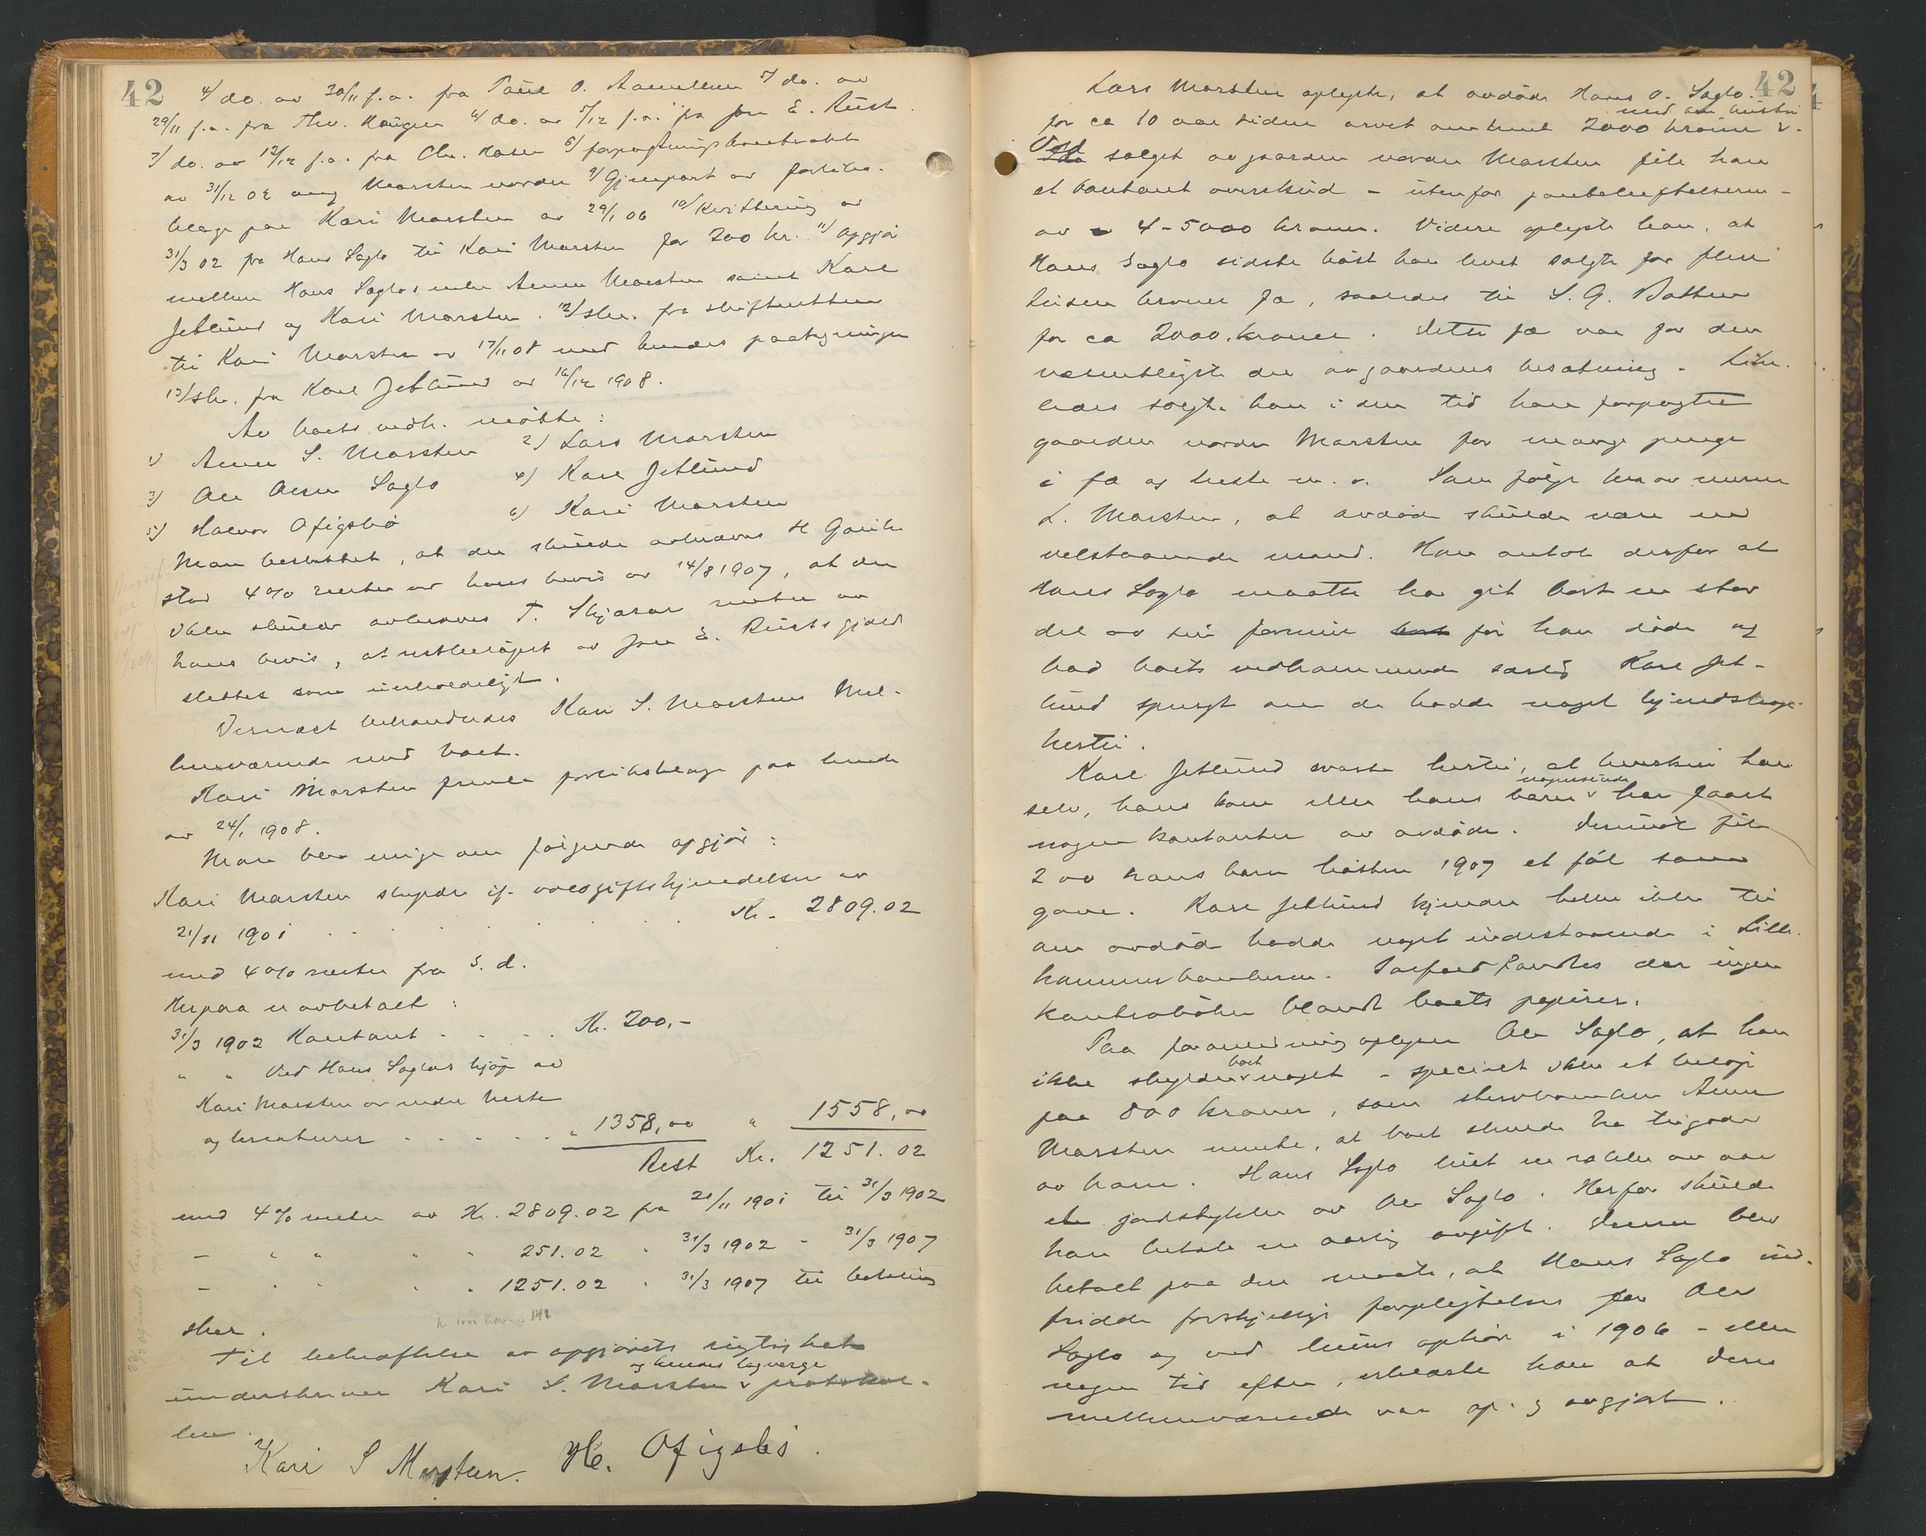 42
4/ do. av 30/11 f.a. fra Paul O. Aamellem 5/ do. av
29/11 f.a. fra Thv. Haugen 6/ do. av 5/12 f.a. fra Jon E. Rust.
7/ do. av 12/12 f.a. fra Chr. Hasen 8/ forpagtningskontrakt
av 31/12 02 ang Marsten nordre 9/ Gjenpart av forliks-
klage paa Kari Marsten av 29/1 06 10/ Kvittering av
31/3 02 fra Hans Saglo til Kari Marsten for 200 kr. 11/ Opgjør
mellem Hans Saglos enke Anne Marsten samt Karl
Jetlund og Kari Marsten. 12/ skr. fra skifteretten
til Kari Marsten av 17/11 08 med hendes paategninger
13/ skr. fra Karl Jetlund av 16/12 1908.
Av boets vedk. møtte:
1) Anne S. Marsten 2) Lars Marsten
3) Ole Olsen Saglo 4) Karl Jetlund
5) Halvor Ofigsbø 6) Kari Marsten
Man besluttet, at der skulde avkræves H Gaukstad
4% renter av hans bevis av 14/8 1907, at der
ikke skulde avkræves T. Skjaxar renter av
hans bevis, at restbeløpet av Jon E. Rusts gjæld
slettes som uerholdeligt.
Dernæst behandledes Kari S. Marstens Mel-
lemværende med boet.
Kari Marsten fremla forliksklage paa hende
av 24/1 1908.
Man blev enige om følgende opgjør:
Kari Marsten skylder if. voldgiftskjendelsen av
21/11 1901 . . . . . . Kr. 2809.02
med 4% renter fra s. d.
Herpaa er avbetalt:
31/3 1902 Kontant . . . . Kr. 200,-
" " Ved Hans Saglos kjøp av
Kari Marsten av endre heste
og kreaturer . . . . . " 1358,00 " 1558,00
Rest Kr. 1251.02
med 4% renter av Kr. 2809.02 fra 21/11 1901 til 31/3 1902
- " " " " 251.02 " 31/3 1902 - 31/3 1907
- " " " 1251.02 " 31/3 1907 til betaling
sker.
Til bekræftelse av opgjørets rigtighet
og hendes lagverge
underskriver Kari S. Marsten v protokol-
len.
Kari S Marsten. H. Ofigsbø.
42
Lars Marsten oplyste, at avdøde Hans O. Saglo
med sin hustru
for ca 10 aar siden arvet omkring 2000 kroner v.
Ved salget av gaarden nordre Marsten fik han
et kontant overskud - utenfor panteheftelserne -
av 4-5000 kroner. Videre oplyste han, at
Hans Saglo sidste høst han levet solgte for flere
tusen kroner fæ, saaledes til S. G. Bakken
for ca 2000 kroner. Dette fæ var for den
væsentligste del av gaardens besætning. Like-
ledes solgte han i den tid han forpagtet
gaarden nordre Marsten for mange penge
i fæ og heste m. v. Som følge herav mener
L. Marsten, at avdøde skulde være en
velstaaende mand. Han antok derfor at
Hans Saglo maatte ha git bort en stor
del av sin formue før han døde og
bad boets vedkommende særlig Karl Jet-
lund spurgt om de hadde noget kjendskap
hertil.
Karl Jetlund svarte hertil, at hverken han
nogensinde
selv, hans kone eller hans børn v har faaet
nogen kontanter av avdøde. Derimot fik
2 av hans barn høsten 1907 et føl som
gave. Karl Jetlund kjender heller ikke til
om avdøde hadde noget indestaaende i Lille-
hammerbankerne. Ialfald fandtes der ingen
kontrabøker blandt boets papirer.
Paa foranledning oplyser Ole Saglo, at han
boet
ikke skylder v noget - specielt ikke et beløp
paa 800 kroner, som stervboenken Anne
Marsten mente, at boet skulde ha tilgode
av ham. Hans Saglo leiet en række av aar
et jordstykke av Ole Saglo. Herfor skulde
han betale en aarlig avgift. Denne blev
betalt paa den maate, at Hans Saglo ind-
fridde forskjellige forpligtelser for Ole
Saglo og ved leiens ophør i 1906 - eller
nogen tid efter, erklærte han at deres
mellemværende var op- og avgjort.